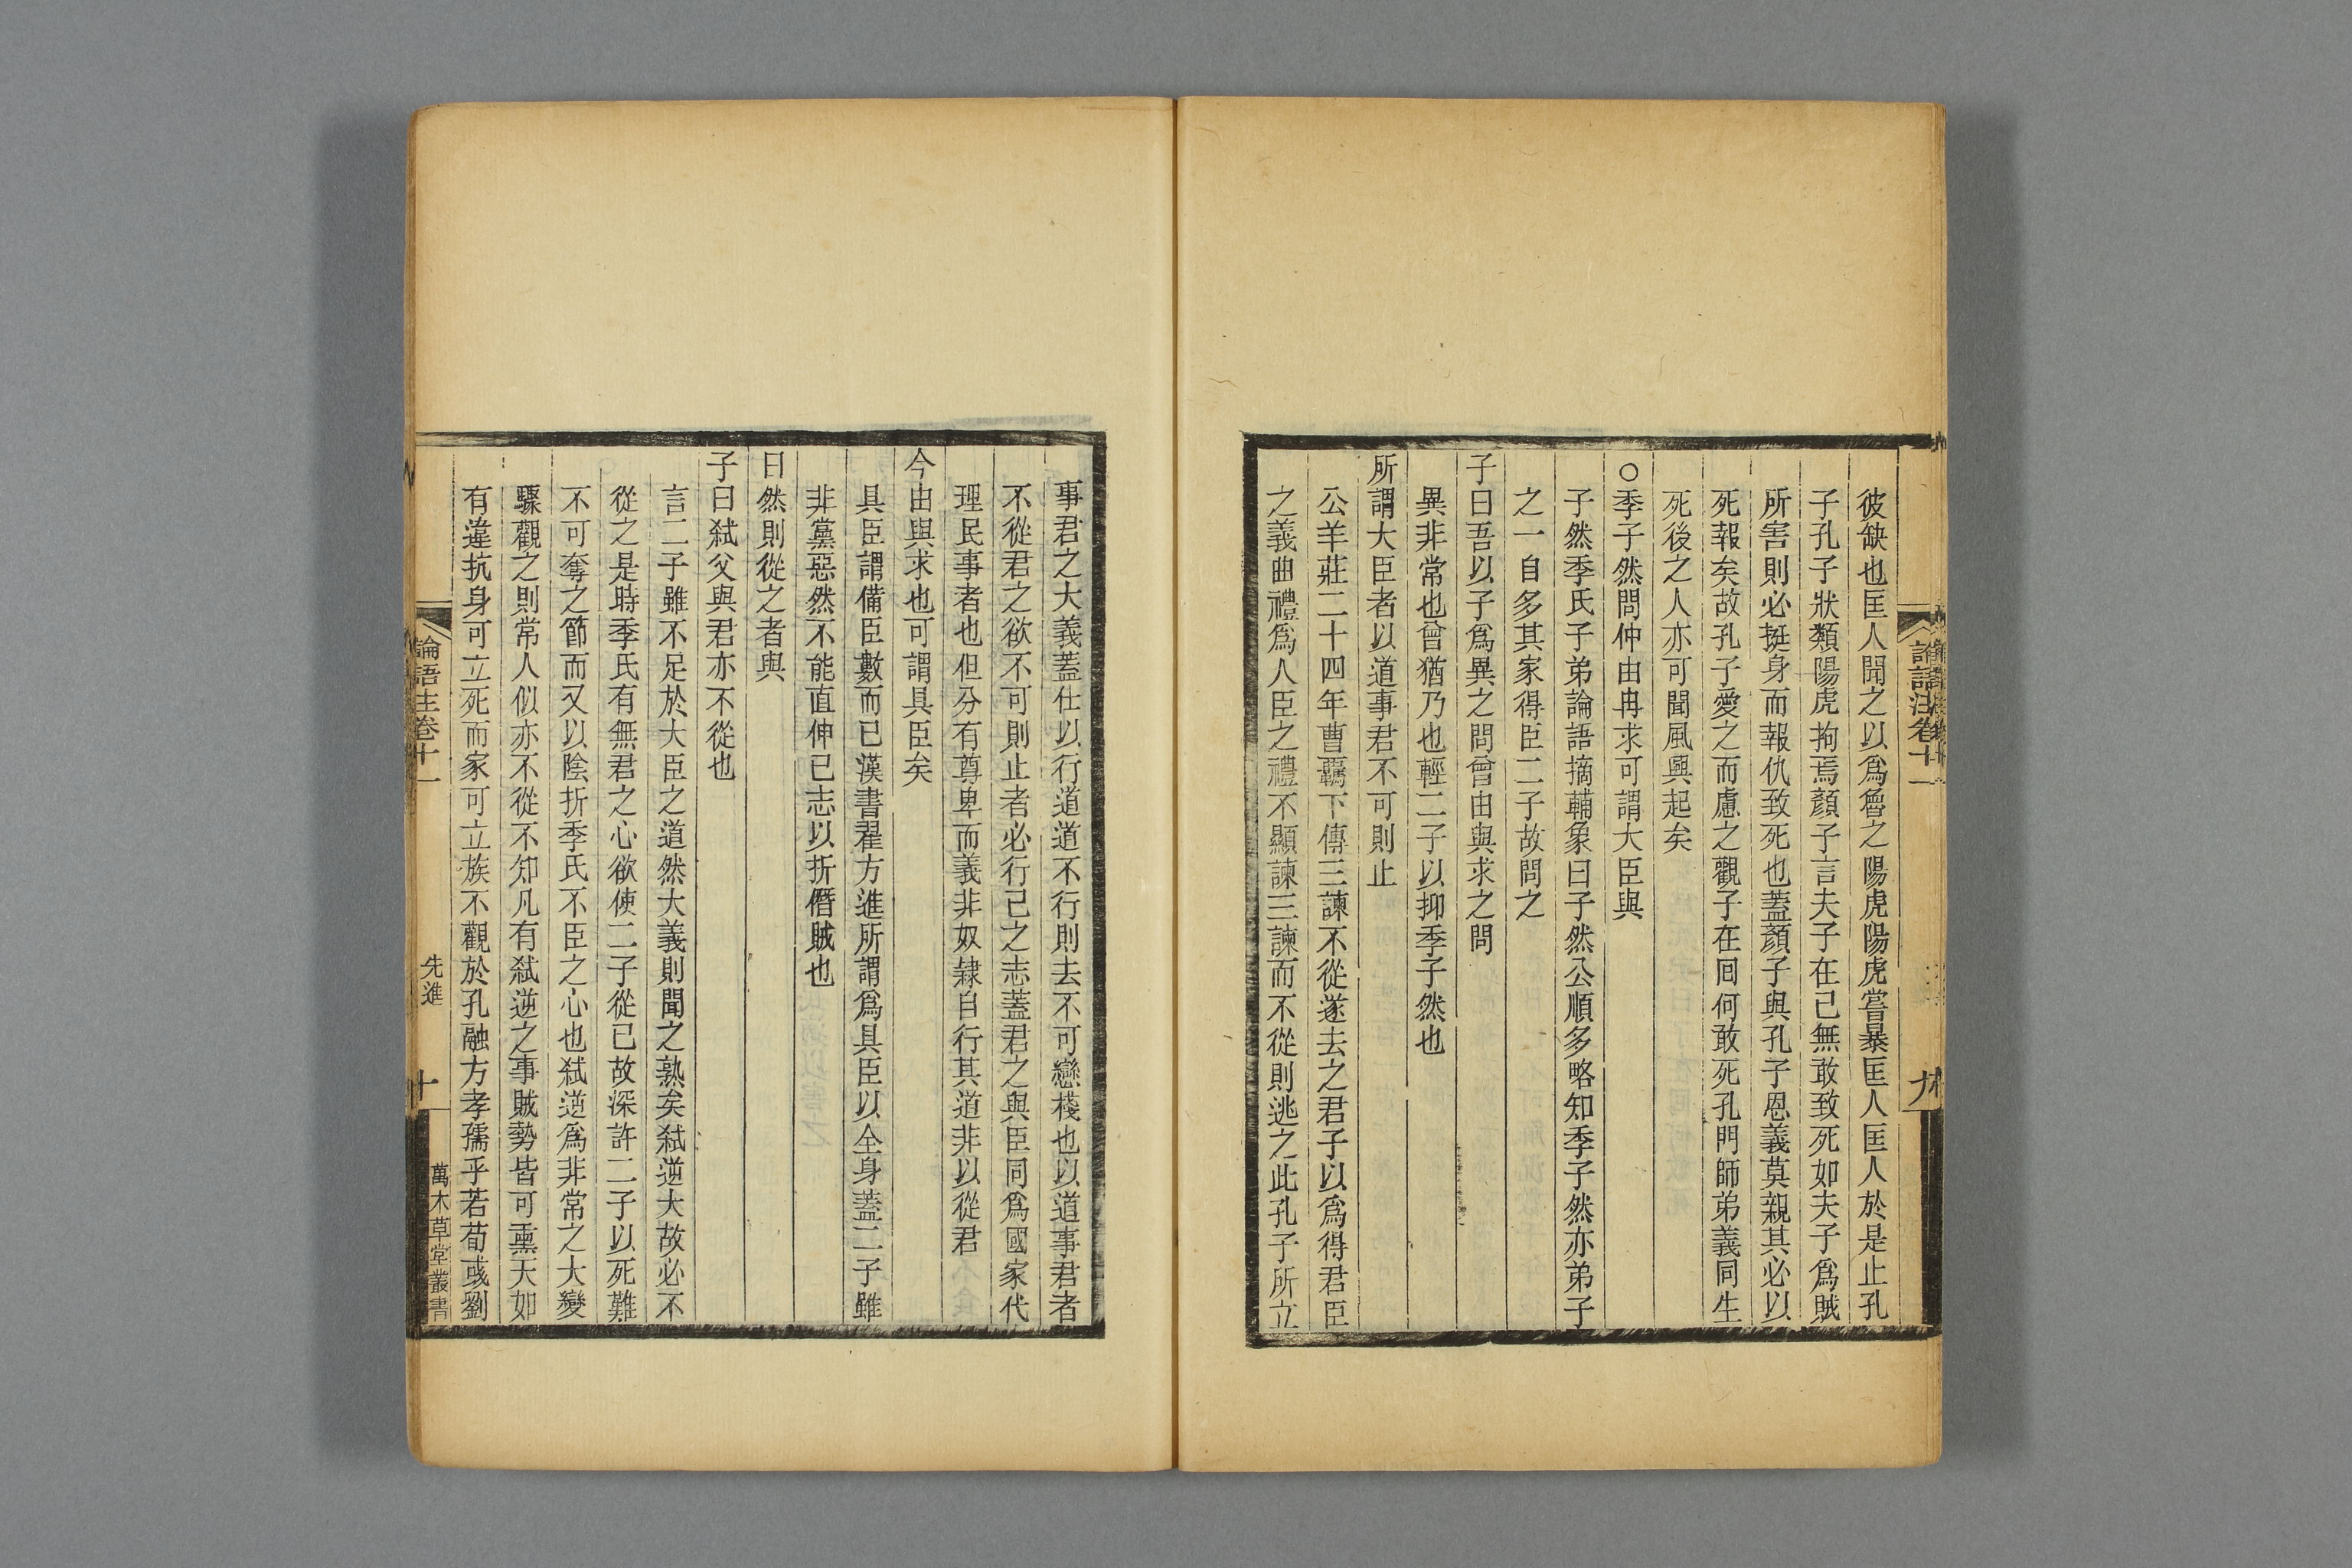 論語注卷十一
九
彼缺也匡人聞之以為魯之陽虎陽虎嘗暴匡人匡人於是止孔
子孔子狀類陽虎拘焉顏子言夫子在己無敢致死如夫子為賊
所害則必挺身而報仇致死也蓋顏子與孔子恩義莫親其必以
死報矣故孔子愛之而慮之觀子在回何敢死孔門師弟義同生
死後之人亦可聞風興起矣
○季子然問仲由冉求可謂大臣與
子然季氏子弟論語摘輔象曰子然公順多略知季子然亦弟子
之一自多其家得臣二子故問之
子曰吾以子為異之問曾由與求之問
異非常也曾猶乃也輕二子以抑季子然也
所謂大臣者以道事君不可則止
公羊莊二十四年曹羈下傳三諫不從遂去之君子以為得君臣
之義曲禮為人臣之禮不顯諫三諫而不從則逃之此孔子所立
事君之大義蓋仕以行道道不行則去不可戀棧也以道事君者
不從君之欲不可則止者必行己之志蓋君之與臣同為國家代
理民事者也但分有尊卑而義非奴隸自行其道非以從君
今由與求也可謂具臣矣
具臣謂備臣數而已漢書翟方進所謂為具臣以全身蓋二子雖
非黨惡然不能直伸已志以折僭賊也
曰然則從之者與
子曰弒父與君亦不從也
言二子雖不足於大臣之道然大義則聞之熟矣弒逆大故必不
從之是時季氏有無君之心欲使二子從已故深許二子以死難
不可奪之節而又以陰折季氏不臣之心也弒逆為非常之大變
驟觀之則常人似亦不從不知凡有弒逆之事賊勢皆可熏天如
有違抗身可立死而家可立族不觀於孔融方孝孺乎若荀彧劉
論語注卷十一
先進
十
萬木草堂叢書